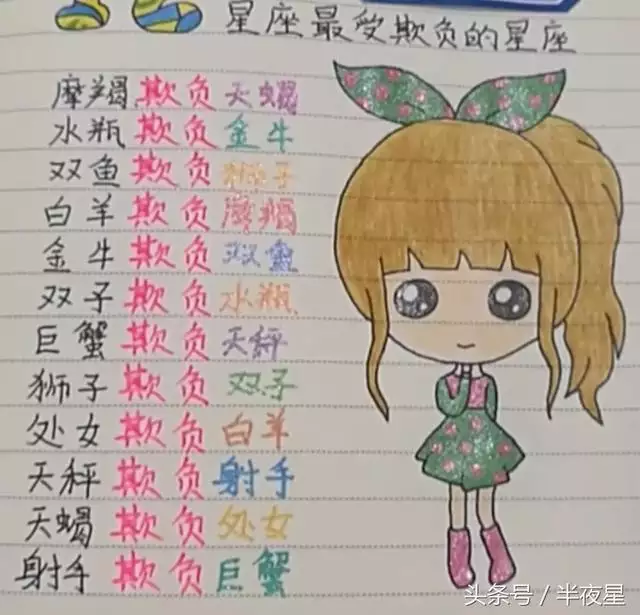 星座最受欺负的星座
摩羯欺负天蝎
水瓶欺负金牛
双鱼欺负狮子
白羊欺负摩羯
金牛欺负双鱼
双子欺负水瓶
巨蟹欺负天秤
狮子欺负双子
处女欺负白羊
天秤欺负射手
天蝎欺负处女
射手欺负巨蟹
头条号／半夜星